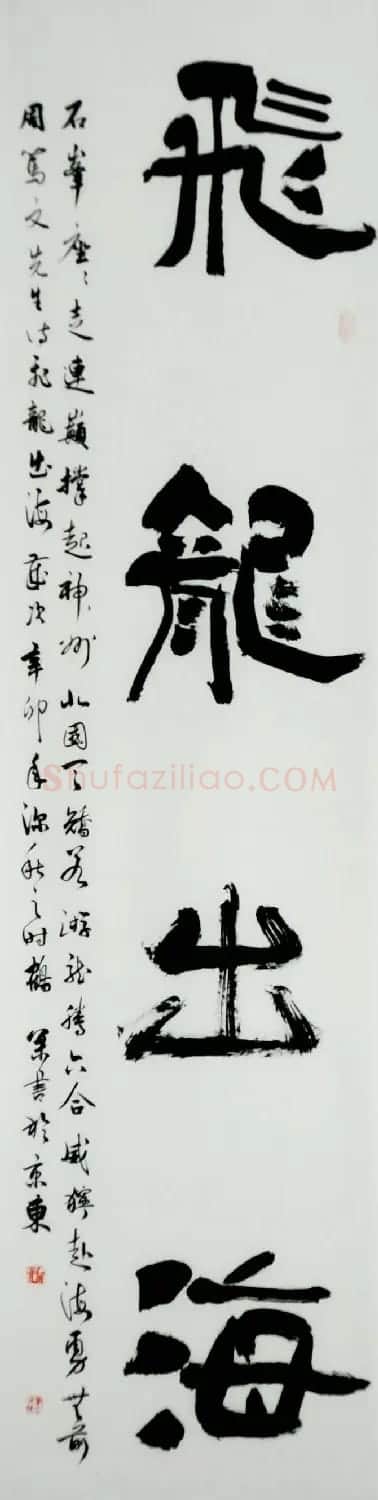 飛龍出海
石峰座々走連巔撑起神州北國天矯若游龍騰六合威猙赴海勇無前
周篤文先生詩飛龍出海 歲次辛卯年深秋之時鶴 書於京東
Shufaziliao.COM